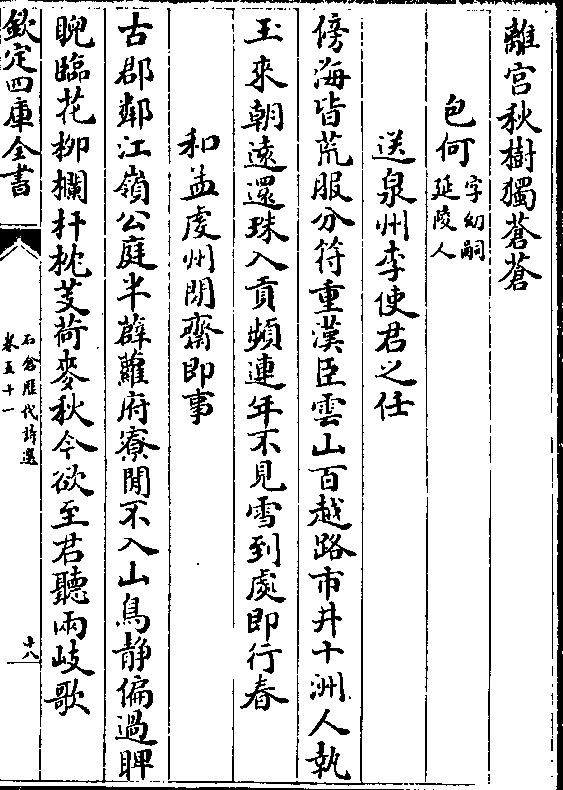 離宮秋樹獨蒼蒼
包何字幼嗣
延陵人
送泉州李使君之任
傍海皆荒服分符重漢臣雲山百越路市井十洲人執
玉來朝遠還珠入貢頻連年不見雪到處即行春
和孟虔州閒齋即事
古郡鄰江嶺公庭半薜蘿府寮閒不入山鳥靜偏過睥
睨臨花柳欄杆枕芰荷麥秋今欲至君聽兩岐歌
欽定四庫全書
石倉歷代詩選
卷五十一
十八